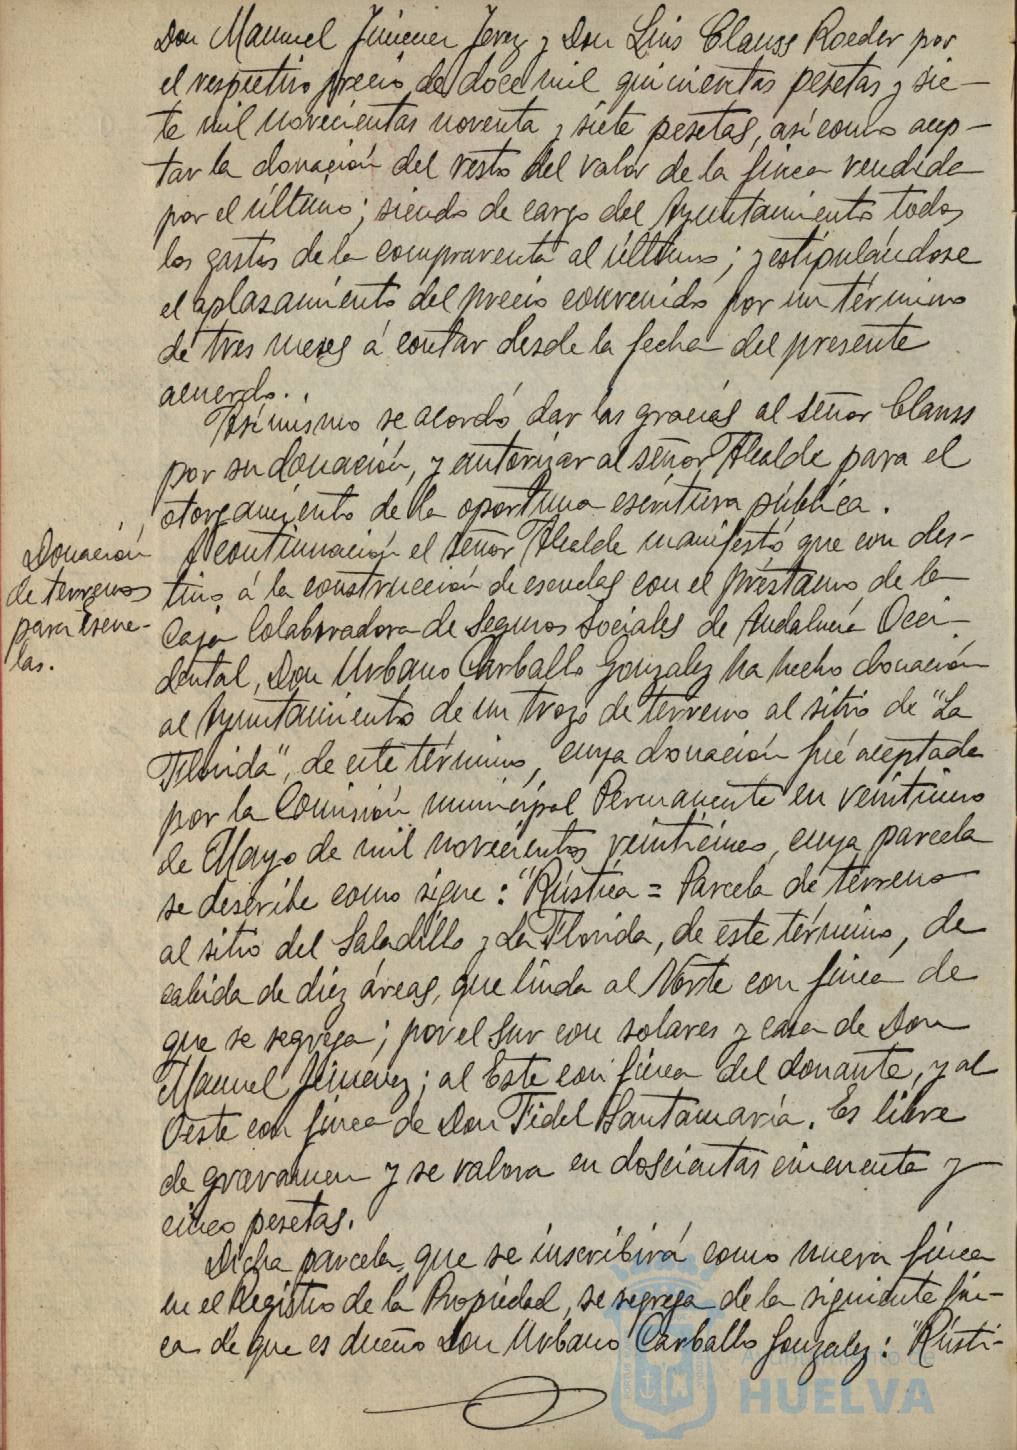 Don Manuel Jimenez Jerez y Don Luis Clauss Roeder por
el respectivo precio de doce mil quinientas pesetas y sie-
te mil novecientas noventa y siete pesetas, así como acep-
tar la donación del resto del valor de la finca vendida
por el último; siendo de cargo del Ayuntamiento todos
los gastos de la compraventa al último; y estipulándose
el aplazamiento del precio convenido por un término
de tres meses á contar desde la fecha del presente
acuerdo.
Asímismo se acordó dar las gracias al señor Clauss
por su donación, y autorizar al señor Alcalde para el
otorgamiento de la oportuna escritura pública.
Donación
de terrenos
para escue-
las.
A continuación el señor Alcalde manifestó que con des-
tino á la construcción de escuelas con el préstamo de la
Caja Colaboradora de Seguros Sociales de Andalucía Occi-
dental, Don Urbano Carballo Gonzalez ha hecho donación
al Ayuntamiento de un trozo de terreno al sitio de "La
Florida", de este término, cuya donación fué aceptada
por la Comisión municipal Permanente en veintiuno
de Mayo de mil novecientos veinticinco, cuya parcela
se describe como sigue: "Rústica = Parcela de terreno
al sitio del Saladillo y La Florida, de este término, de
cabida de diez áreas, que linda al Norte con finca de
que se segrega; por el Sur con solares y casa de Don
Manuel Jimenez; al Este con finca del donante, y al
Oeste con finca de Don Fidel Santamaría. Es libre
de gravamen y se valora en doscientas cincuenta y
cinco pesetas.
Dicha parcela, que se inscribirá como nueva finca
en el Registro de la Propiedad, se segrega de la siguiente fin-
ca de que es dueño Don Urbano Carballo Gonzalez: "Rústi-
Ayuntamiento de
HUELVA